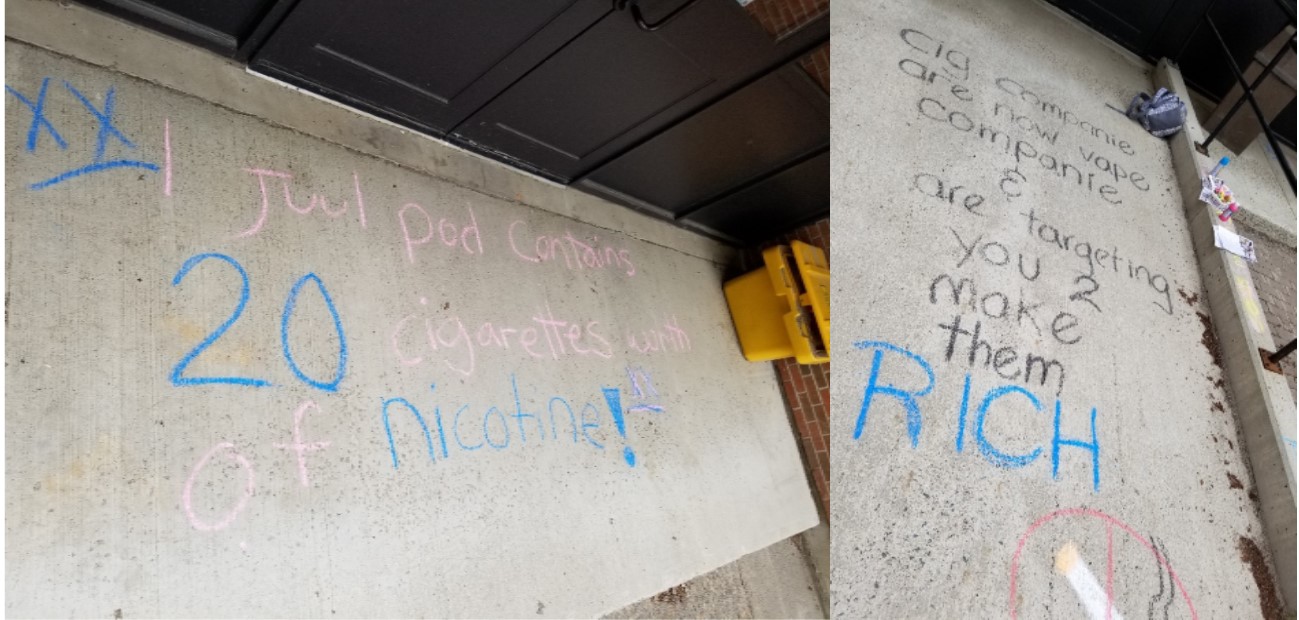 XX
1 Juul pod contains
20 cigarettes worth
of nicotine!
cig companie
are now vape
companie
&
are targeting
you 2
make
them
RICH